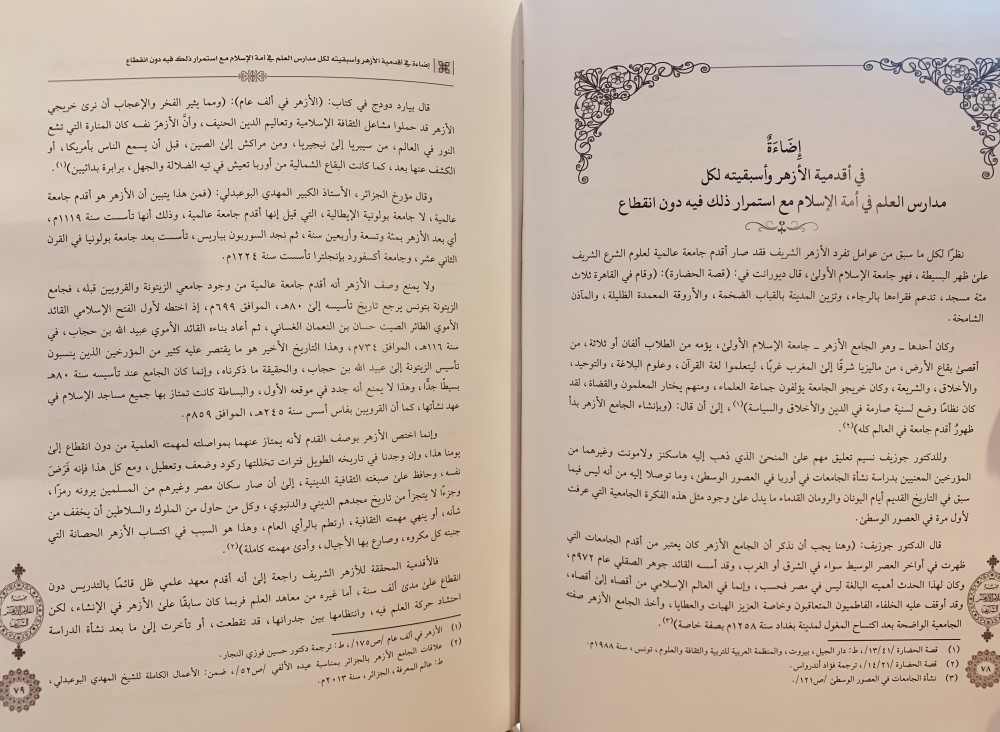 إِضَاءَةٌ
في أقدمية الأزهر وأسبقيته لكل
مدارس العلم في أمة الإسلام مع استمرار ذلك فيه دون انقطاع
نظرًا لكل ما سبق من عوامل تفرد الأزهر الشريف فقد صار أقدم جامعة عالمية لعلوم الشرع الشريف
علىٰ ظهر البسيطة، فهو جامعة الإسلام الأولىٰ، قال ديورانت في: (قصة الحضارة): (وقام في القاهرة ثلاث
مئة مسجد، تدعم فقراءها بالرجاء، وتزين المدينة بالقباب الضخمة، والأروقة المعمدة الظليلة، والمآذن
الشامخة.
وكان أحدها ــ وهو الجامع الأزهر ــ جامعة الإسلام الأولىٰ، يؤمه من الطلاب ألفان أو ثلاثة، من
أقصىٰ بقاع الأرض، من ماليزيا شرقًا إلىٰ المغرب غربًا، ليتعلموا لغة القرآن، وعلوم البلاغة، والتوحيد،
والأخلاق، والشريعة، وكان خريجو الجامعة يؤلفون جماعة العلماء، ومنهم يختار المعلمون والقضاة، لقد
كان نظامًا وضع لسنية صارمة في الدين والأخلاق والسياسة)(١)، إلىٰ أن قال: (وبإنشاء الجامع الأزهر بدأ
ظهورُ أقدم جامعة في العالم كله)(٢).
وللدكتور جوزيف نسيم تعليق مهم علىٰ المنحىٰ الذي ذهب إليه هاسكنز ولامونت وغيرهما من
المؤرخين المعنيين بدراسة نشأة الجامعات في أوربا في العصور الوسطىٰ، وما توصلا إليه من أنه ليس فيما
سبق في التاريخ القديم أيام اليونان والرومان القدماء ما يدل علىٰ وجود مثل هذه الفكرة الجامعية التي عرفت
لأول مرة في العصور الوسطىٰ.
قال الدكتور جوزيف: (وهنا يجب أن نذكر أن الجامع الأزهر كان يعتبر من أقدم الجامعات التي
ظهرت في أواخر العصر الوسيط سواء في الشرق أو الغرب، وقد أسسه القائد جوهر الصقلي عام ٩٧٢م،
وكان لهذا الحدث أهميته البالغة ليس في مصر فحسب، وإنما في العالم الإسلامي من أقصاه إلى أقصاه،
وقد أوقف عليه الخلفاء الفاطميون المتعاقبون وخاصة العزيز الهبات والعطايا، وأخذ الجامع الأزهر صفته
الجامعية الواضحة بعد اكتساح المغول لمدينة بغداد سنة ١٢٥٨م بصفة خاصة)(٣).
(١) قصة الحضارة /١٣/٤١/، ط: دار الجيل، بيروت، والمنظمة العربية للتربية والثقافة والعلوم، تونس، سنة ١٩٨٨م.
(٢) قصة الحضارة /١٤/٢١/، ترجمة فؤاد أندرواس.
(٣) نشأة الجامعات في العصور الوسطىٰ /ص١٢١/.
٧٨
إضاءة في أقدمية الأزهر وأسبقيته لكل مدارس العلم في أمة الإسلام مع استمرار ذلك فيه دون انقطاع
قال بيارد دودج في كتاب: (الأزهر في ألف عام): (ومما يثير الفخر والإعجاب أن نرىٰ خريجي
الأزهر قد حملوا مشاعل الثقافة الإسلامية وتعاليم الدين الحنيف، وأنَّ الأزهرَ نفسه كان المنارة التي تشع
النور في العالم، من سيبريا إلىٰ نيجيريا، ومن مراكش إلىٰ الصين، قبل أن يسمع الناس بأمريكا، أو
الكشف عنها بعد، كما كانت البقاع الشمالية من أوربا تعيش في تيه الضلالة والجهل، برابرة بدائيين)(١).
وقال مؤرخ الجزائر، الأستاذ الكبير المهدي البوعبدلي: (فمن هذا يتبين أن الأزهر هو أقدم جامعة
عالمية، لا جامعة بولونية الإيطالية، التي قيل إنها أقدم جامعة عالمية، وذلك أنها تأسست سنة ١١١٩م،
أي بعد الأزهر بمئة وتسعة وأربعين سنة، ثم نجد السوربون بباريس، تأسست بعد جامعة بولونيا في القرن
الثاني عشر، وجامعة أكسفورد بإنجلترا تأسست سنة ١٢٢٤م.
ولا يمنع وصف الأزهر أنه أقدم جامعة عالمية من وجود جامعي الزيتونة والقرويين قبله، فجامع
الزيتونة بتونس يرجع تاريخ تأسيسه إلىٰ ٨٠هـ، الموافق ٦٩٩م، إذ اختطه لأول الفتح الإسلامي القائد
الأموي الطائر الصيت حسان بن النعمان الغساني، ثم أعاد بناءه القائد الأموي عبيد الله بن حجاب، في
سنة ١١٦هـ، الموافق ٧٣٤م، وهذا التاريخ الأخير هو ما يقتصر عليه كثير من المؤرخين الذين ينسبون
تأسيس الزيتونة إلىٰ عبيد الله بن حجاب، والحقيقة ما ذكرناه، وإنما كان الجامع عند تأسيسه سنة ٨٠هـ
بسيطًا جدًّا، وهذا لا يمنع أنه جدد في موقعه الأول، والبساطة كانت تمتاز بها جميع مساجد الإسلام في
عهد نشأتها، كما أن القرويين بفاس أسس سنة ٢٤٥هـ، الموافق ٨٥٩م.
وإنما اختص الأزهر بوصف القدم لأنه يمتاز عنهما بمواصلته لمهمته العلمية من دون انقطاع إلىٰ
يومنا هذا، وإن وجدنا في تاريخه الطويل فترات تخللتها ركود وضعف وتعطيل، ومع كل هذا فإنه فَرَضَ
نفسه، وحافظ علىٰ صبغته الثقافية الدينية، إلىٰ أن صار سكان مصر وغيرهم من المسلمين يرونه رمزًا،
وجزءًا لا يتجزأ من تاريخ مجدهم الديني والدنيوي، وكل من حاول من الملوك والسلاطين أن يخفف من
شأنه، أو ينهي مهمته الثقافية، ارتطم بالرأي العام، وهذا هو السبب في اكتساب الأزهر الحصانة التي
جنبته كل مكروه، وصارع بها الأجيال، وأدىٰ مهمته كاملة)(٢).
فالأقدمية المحققة للأزهر الشريف راجعة إلىٰ أنه أقدم معهد علمي ظل قائمًا بالتدريس دون
انقطاع علىٰ مدىٰ ألف سنة، أما غيره من معاهد العلم فربما كان سابقًا علىٰ الأزهر في الإنشاء، لكن
احتشاد حركة العلم فيه، وانتظامها بين جدرانها، قد تقطعت، أو تأخرت إلىٰ ما بعد نشأة الدراسة
(١) الأزهر في ألف عام /ص١٧٥/، ط: ترجمة دكتور حسين فوزي النجار.
(٢) علاقات الجامع الأزهر بالجزائر بمناسبة عيده الألفي /ص٥٢/، ضمن: الأعمال الكاملة للشيخ المهدي البوعبدلي،
ط: عالم المعرفة، الجزائر، سنة ٢٠١٣م.
٧٩